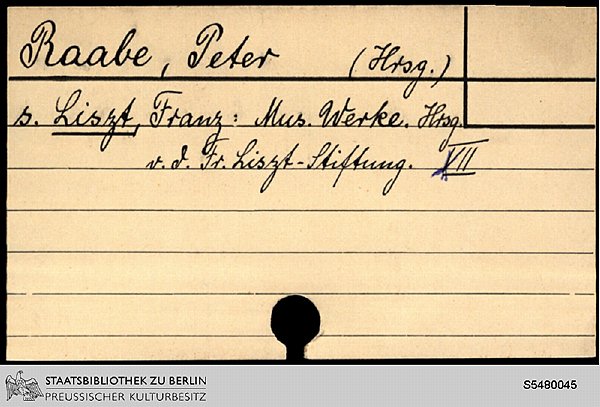 Raabe, Peter (Hrsg.)
s. Liszt, Franz: Mus. Werke. Hrsg.
v. d. Fr. Liszt-Stiftung. VII
STAATSBIBLIOTHEK ZU BERLIN
PREUSSISCHER KULTURBESITZ
S5480045